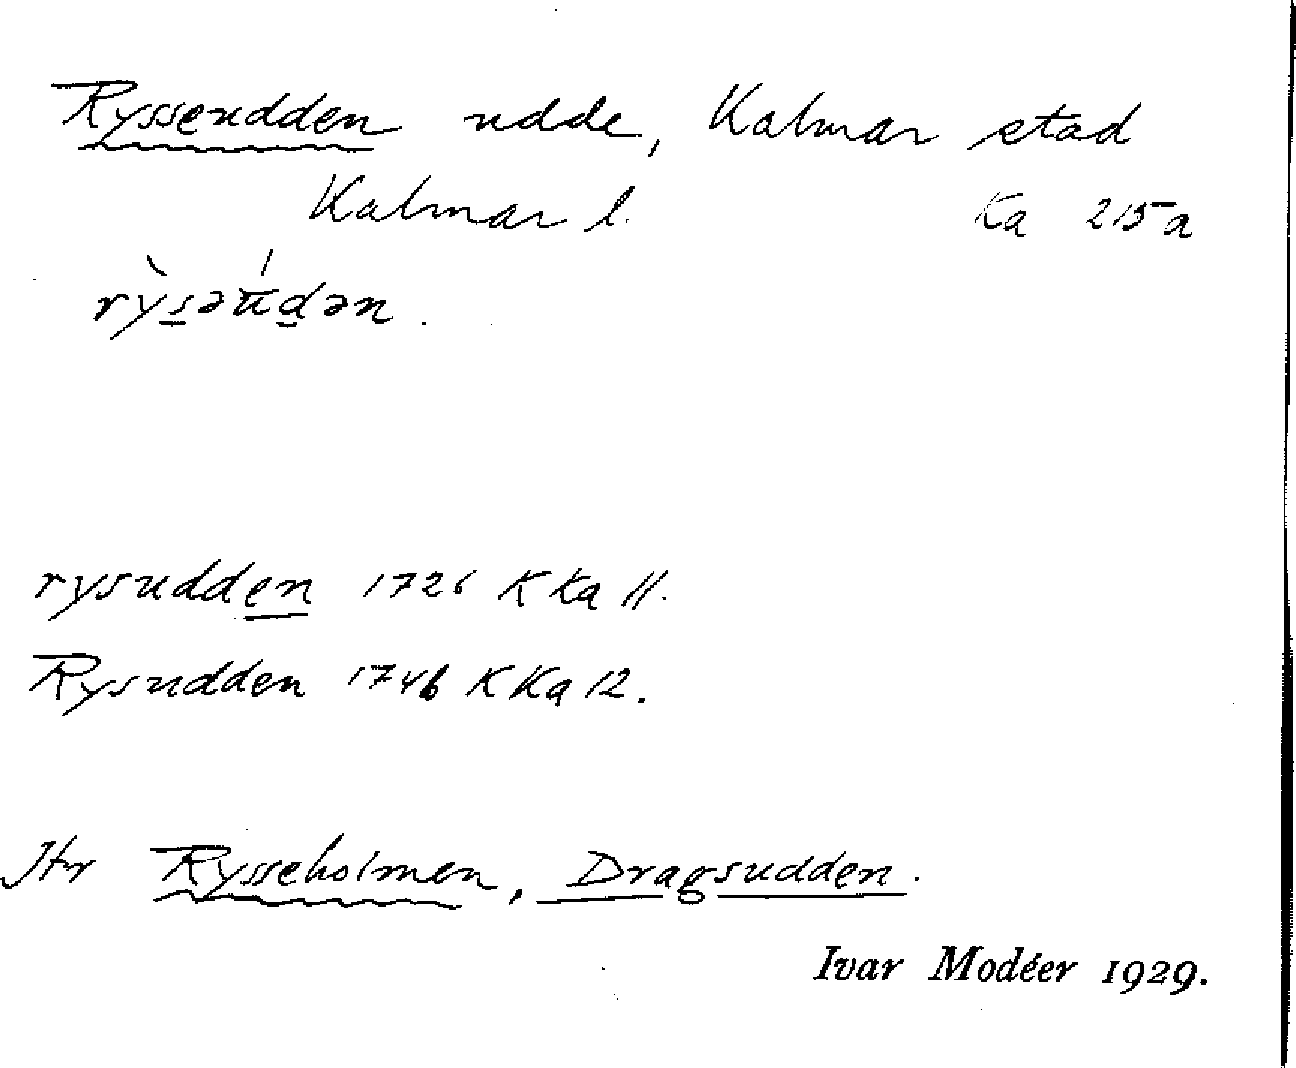 Ryssendden udde, Kalmar stad
Kalmar l. Ka 215a
rỳsəu̅́dən.
rysudden 1726 K Ka 11.
Rysudden 1746 K Ka 12.
Jfr Rysseholmen, Dragsudden.
Ivar Modéer 1929.